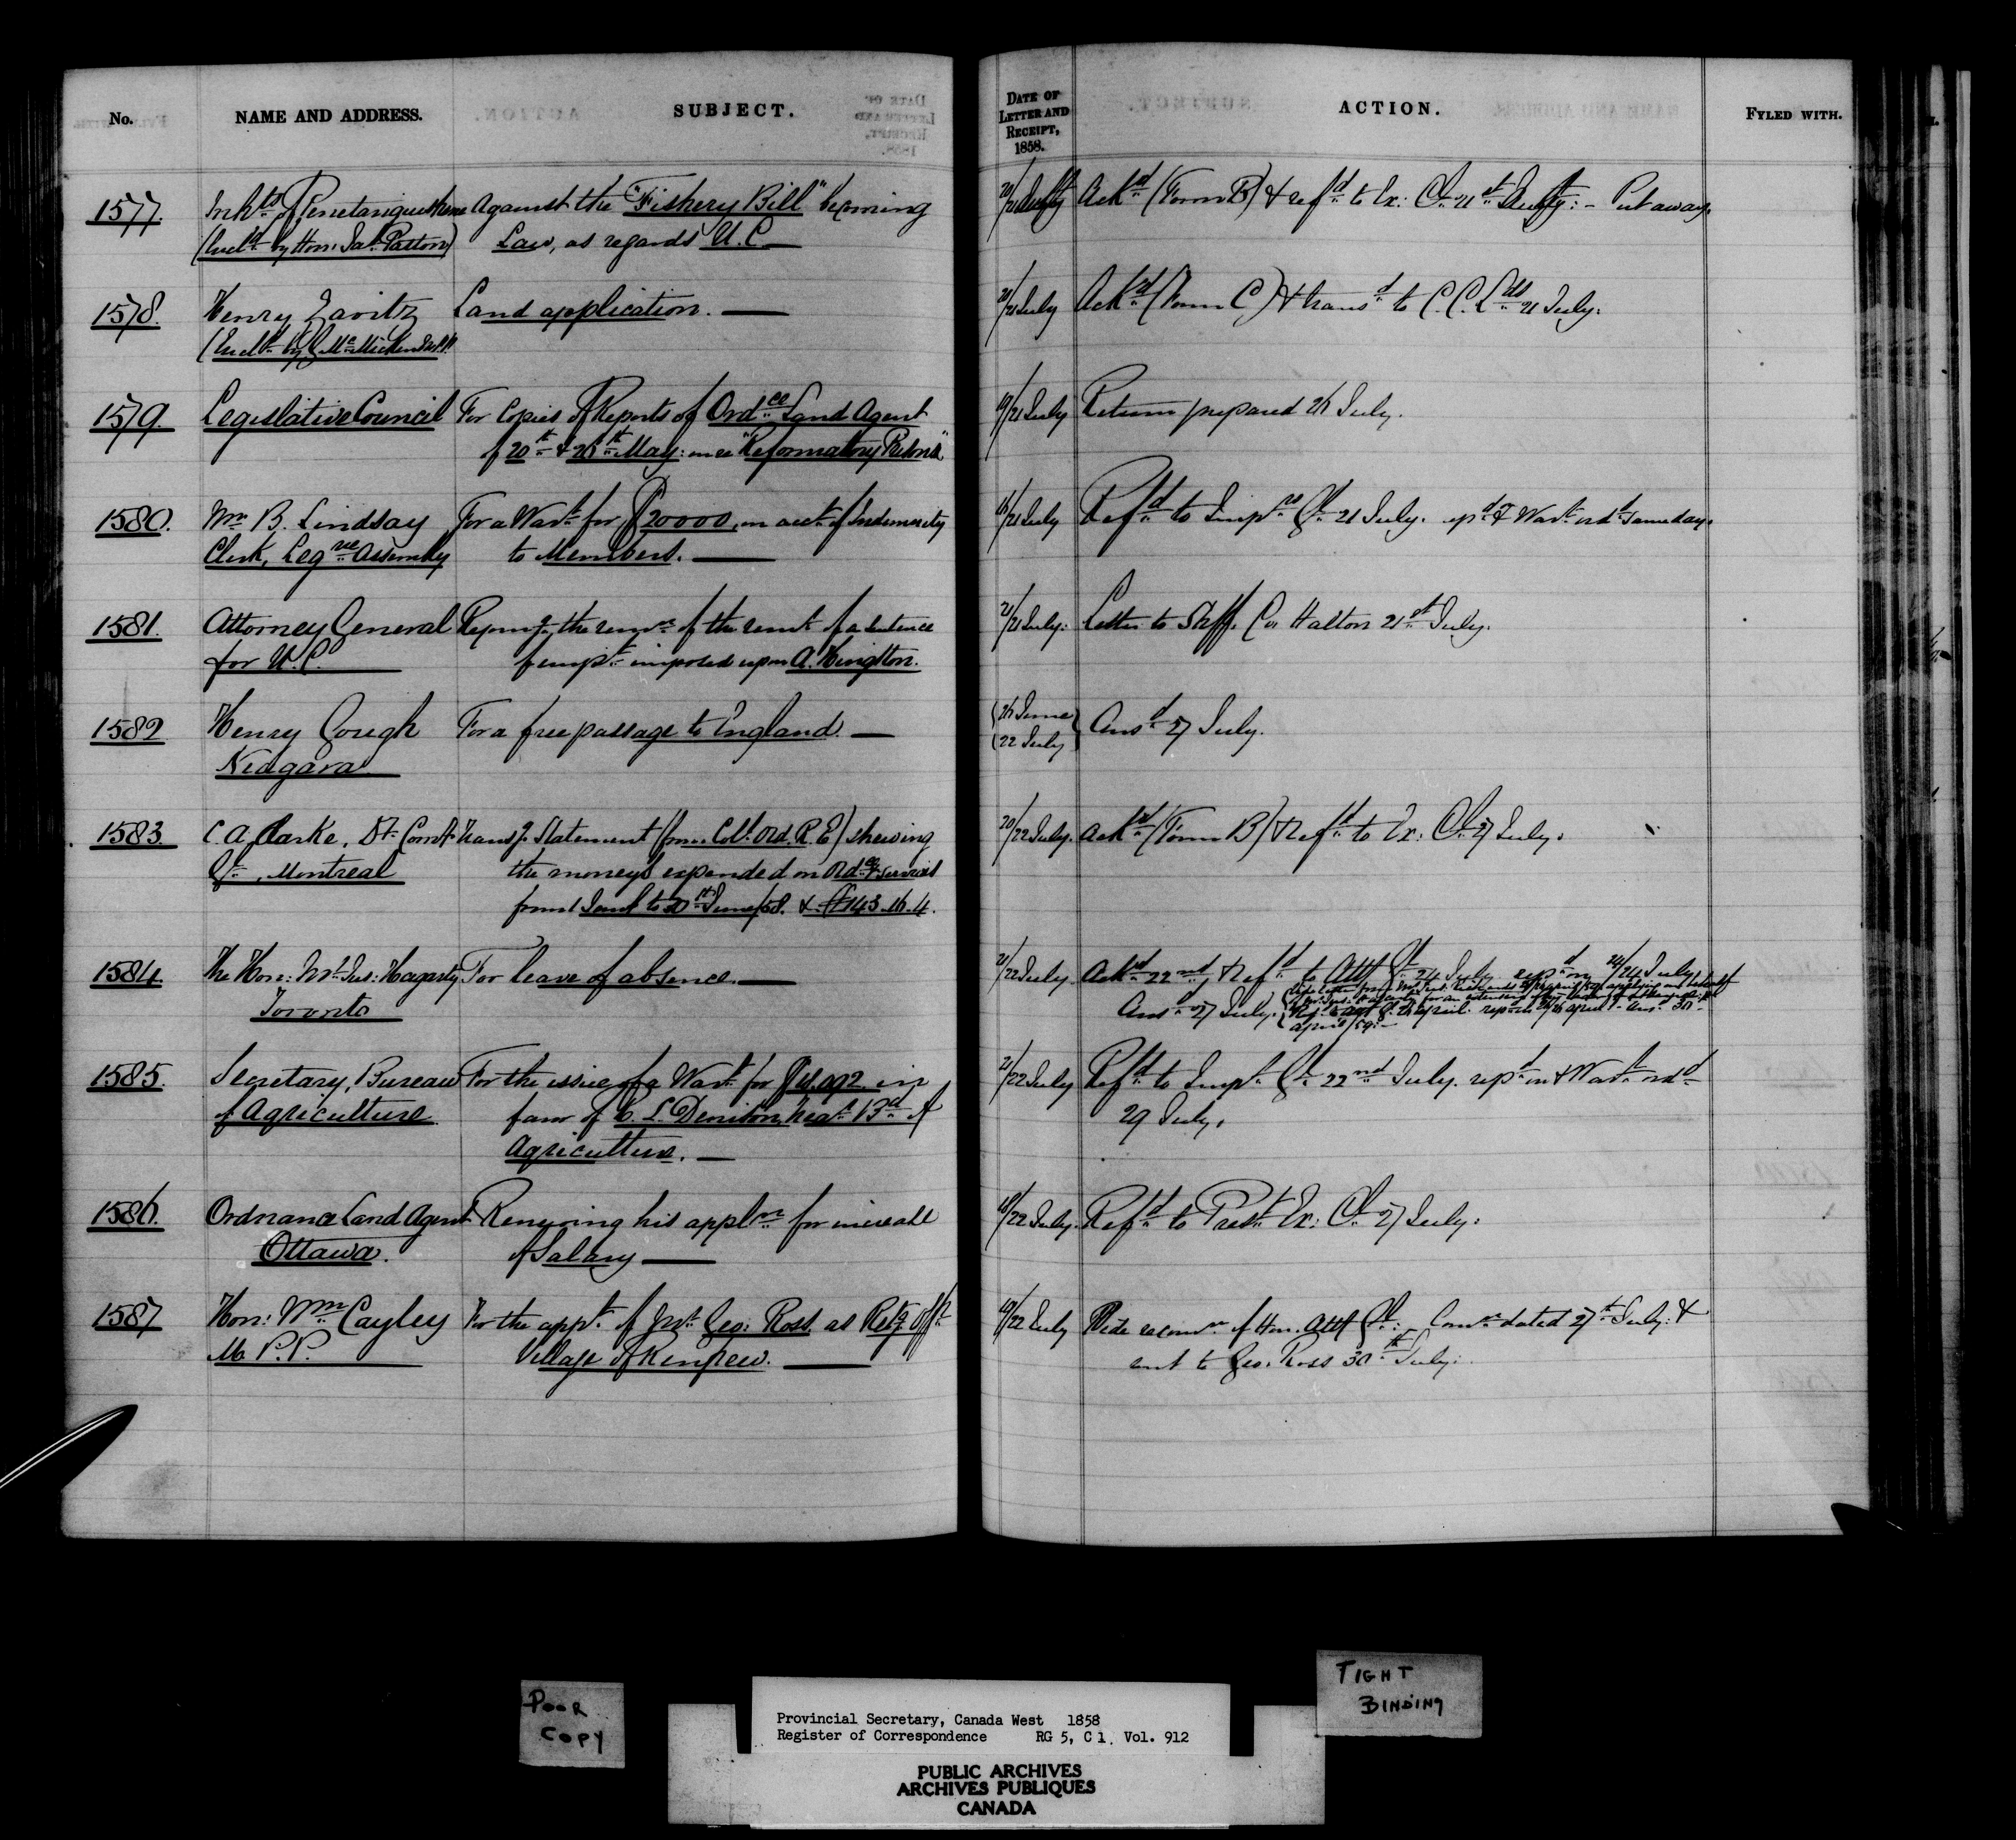 No.
NAME AND ADDRESS.
SUBJECT.
DATE OF LETTER AND RECEIPT, 1858.
ACTION.
FYLED WITH.
1577. Inhts of Penetanguishene Against the "Fishery Bill" becoming 20/21 July Ackd (Form B) & refd to Ex: Cl. 21st July: - Put away.
(Encld by Hon: Jas. Patton) Law, as regards U.C.
1578. Henry Zavitz Land application. 20/21 July Ackd (Form C) & transd to C.C.Lds 21 July.
(Encld by G McMicken
1579. Legislative Council For Copies of Reports of Ordce Land Agent 19/21 July Return prepared 26 July.
of 20th & 26th May: in re "Reformatory Prisons"
1580. Wm B. Lindsay For a Wart for $20000, on acct of Indemnity 16/21 July Refd to Inspr Gl. 21 July. & Wart ordd same day.
Clerk, Legve Assembly to Members.
1581. Attorney General the of the remt of a sentence 21/21 July. Letter to Shff. Co Halton 21st July.
for U.C. of impt imposed upon A.
1582. Henry Gough For a free passage to England. 26 June Ansd 27 July.
Niagara 22 July
1583. C. A. Clarke, Dt. Transg Statement (from Colt. Ord. R.E) shewing 20/22 July. Ackd (Form B) & Refd to Ex: Cl. 27 July.
Gl., Montreal the moneys expended on Ordce Services
from 1 Jany to 30th June/58. & £1143.16.4.
1584. The Hon: Mr. Jus: Hagarty For leave of absence. 21/22 July. Ackd 22nd, & Refd to Atty Gl. 24 July. repd on 24/24 July
Toronto Ans. 27 July.
April/59.
1585. Secretary, Bureau For the issue of a Wart for in 21/22 July Refd to Inspr Gl. 22nd July. repd on & Wart ordd
of Agriculture favor of C. L. Denison, Bd of 29 July.
Agriculture.
1586. Ordnance Land Agent Renewing his appln for increase 18/22 July. Refd to Prest. Ex: Cl. 27 July.
Ottawa. of Salary
1587 Hon: Wm Cayley For the appt of Mr. Geo: Ross as Retg Offr 19/22 July Vide recomn of Hon. Atty Gl: Comn dated 27th July: &
M.P.P. Village of Renfrew. sent to Geo. Ross 30th July.
POOR
COPY
TIGHT
BINDING
Provincial Secretary, Canada West 1858
Register of Correspondence RG 5, C 1, Vol. 912
PUBLIC ARCHIVES
ARCHIVES PUBLIQUES
CANADA